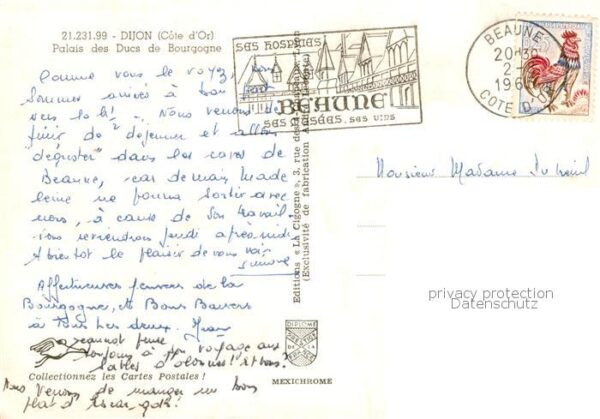 21.231.99 - DIJON (Côte d'Or)
Palais des Ducs de Bourgogne
Comme vous le voyez, nous
sommes arrivés à bon port
vers 10 h! Nous venons de
finir de déjeuner et allons
"déguster" dans les caves de
Beaune, car demain Made
leine ne pourra sortir avec
nous, à cause de son travail.
Nous reviendrons jeudi après-midi
A bientôt le plaisir de vous voir
Affectueuses pensées de la
Bourgogne, et Bons Baisers
à Tous Les deux.
Jeannot pense
toujours à son voyage aux
Sables d'olonnes! et vous?
Collectionnez les Cartes Postales !
Nous Venons de manger un bon
plat d'Escargots!
SES HOSPICES
BEAUNE
SES MUSÉES, SES VINS
BEAUNE
20H30
196
COTE D'OR
Editions « LA Cigogne », 3, rue des
(Exclusivité de fabrication
DIPLOME
DE LA
MEXICHROME
Monsieur Madame
privacy protection
Datenschutz